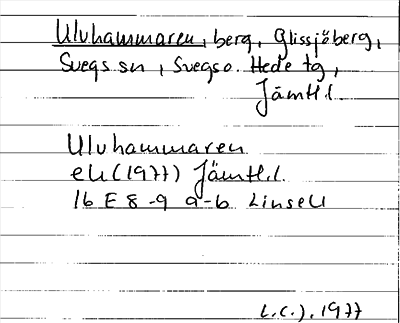 Ulvhammaren, berg, Glissjöberg,
Svegs sn, Svegs o. Hede tg,
Jämtl.l.
Ulvhammaren
ek (1977) Jämtl.l.
16 E 8-9 a-b Linsell
L.C.), 1977